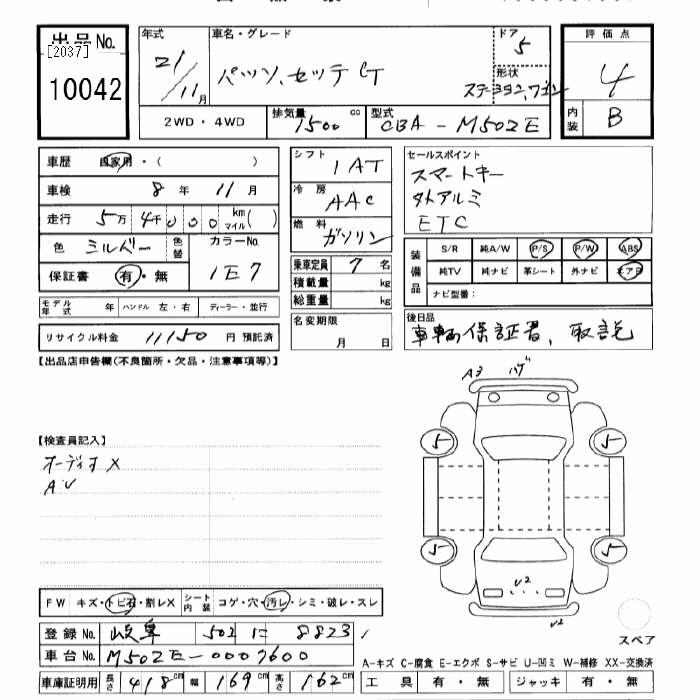 出品No.
[2037]
10042
年式
21/11月
車名・グレード
パッソ.セッテ G
ドア
5
形状
ステーションワゴン
評価点
4
内装
B
2WD・4WD
排気量
1500 cc
型式
CBA-M502E
車歴 自家用・( )
車検 8 年 11 月
走行 5万 4千 000 km マイル( )
色 シルバー 色替 カラーNo. 1E7
保証書 有・無
モデル年式 年 ハンドル 左・右 ディーラー・並行
リサイクル料金 11150 円 預託済
シフト
1AT
冷房
AAC
燃料
ガソリン
乗車定員 7 名
積載量 kg
総重量 kg
名変期限
月 日
セールスポイント
スマートキー
タトアルミ
ETC
装備品
S/R 純A/W P/S P/W ABS
純TV 純ナビ 革シート 外ナビ エアB
ナビ型番:
後日品
車輌保証書、取説
【出品店申告欄(不良箇所・欠品・注意事項等)】
【検査員記入】
オーディオ X
AU
A3 ハゲ
5 5
5 5
U2
U2
スペア
FW キズ・トビ石・割レX シート内装 コゲ・穴・汚レ・シミ・破レ・スレ
登録No. 岐阜 502 に 8823
車台No. M502E-0007600
車庫証明用 長さ 418cm 幅 169cm 高さ 162cm
A-キズ C-腐食 E-エクボ S-サビ U-凹ミ W-補修 XX-交換済
工具 有・無 ジャッキ 有・無